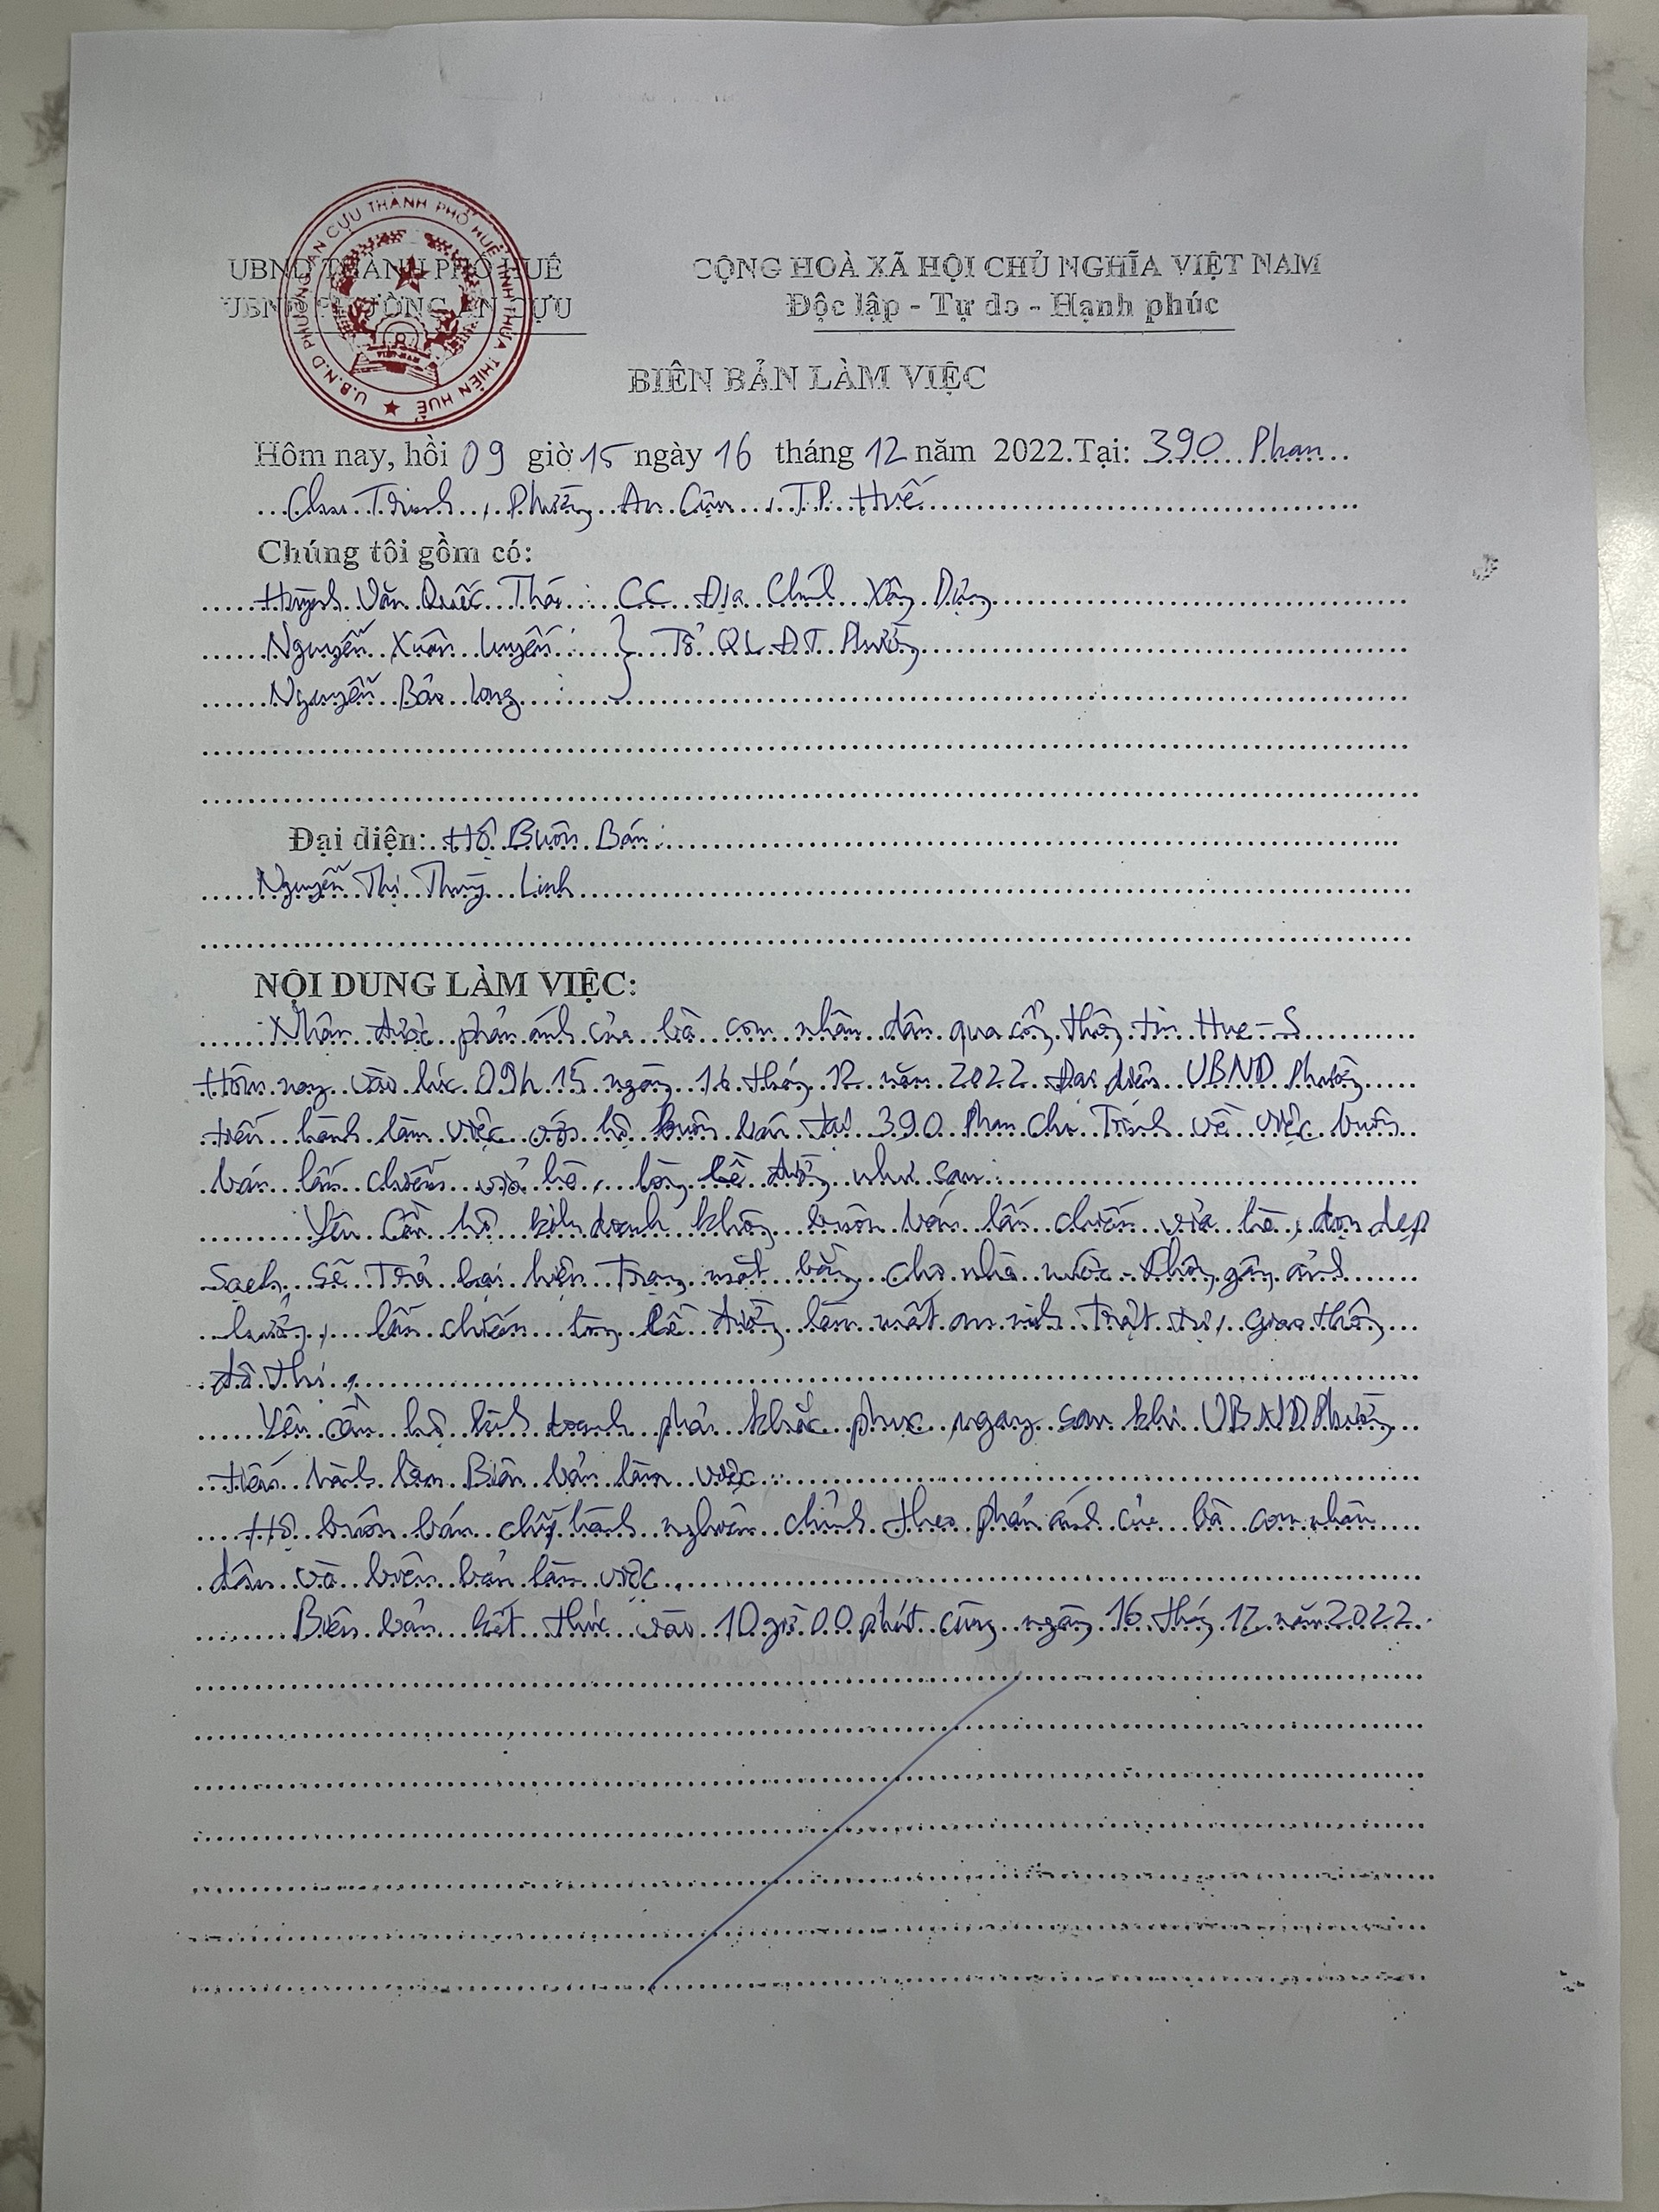 UBND THÀNH PHỐ HUẾ
UBND PHƯỜNG AN CỰU
U.B.N.D PHƯỜNG AN CỰU THÀNH PHỐ HUẾ TỈNH THỪA THIÊN HUẾ
VIỆT NAM
CỘNG HOÀ XÃ HỘI CHỦ NGHĨA VIỆT NAM
Độc lập - Tự do - Hạnh phúc
BIÊN BẢN LÀM VIỆC
Hôm nay, hồi 09 giờ 15 ngày 16 tháng 12 năm 2022. Tại: 390 Phan
Chu Trinh, Phường An Cựu, T.P. Huế
Chúng tôi gồm có:
Huỳnh Văn Quốc Thái : CC Địa Chính Xây Dựng
Nguyễn Xuân Luyến : } Tổ QLĐT Phường
Nguyễn Bảo Long :
Đại diện: Hộ Buôn Bán :
Nguyễn Thị Thuỳ Linh
NỘI DUNG LÀM VIỆC:
Nhận được phản ánh của bà con nhân dân qua cổng thông tin Hue-S
Hôm nay vào lúc 09h 15 ngày 16 tháng 12 năm 2022 Đại diện UBND Phường
tiến hành làm việc với hộ buôn bán tại 390 Phan Chu Trinh về việc buôn
bán lấn chiếm vỉa hè, lòng lề đường như sau:
Yêu Cầu hộ kinh doanh không buôn bán lấn chiếm vỉa hè, dọn dẹp
Sạch sẽ Trả lại hiện Trạng mặt bằng cho nhà nước. Không gây ảnh
hưởng, lấn chiếm lòng lề đường làm mất an ninh Trật tự, giao thông
đô thị.
Yêu cầu hộ kinh doanh phải khắc phục ngay sau khi UBND Phường
tiến hành làm Biên bản làm việc.
Hộ buôn bán chấp hành nghiêm chỉnh theo phản ánh của bà con nhân
dân và biên bản làm việc.
Biên bản kết thúc vào 10 giờ 00 phút cùng ngày 16 tháng 12 năm 2022.